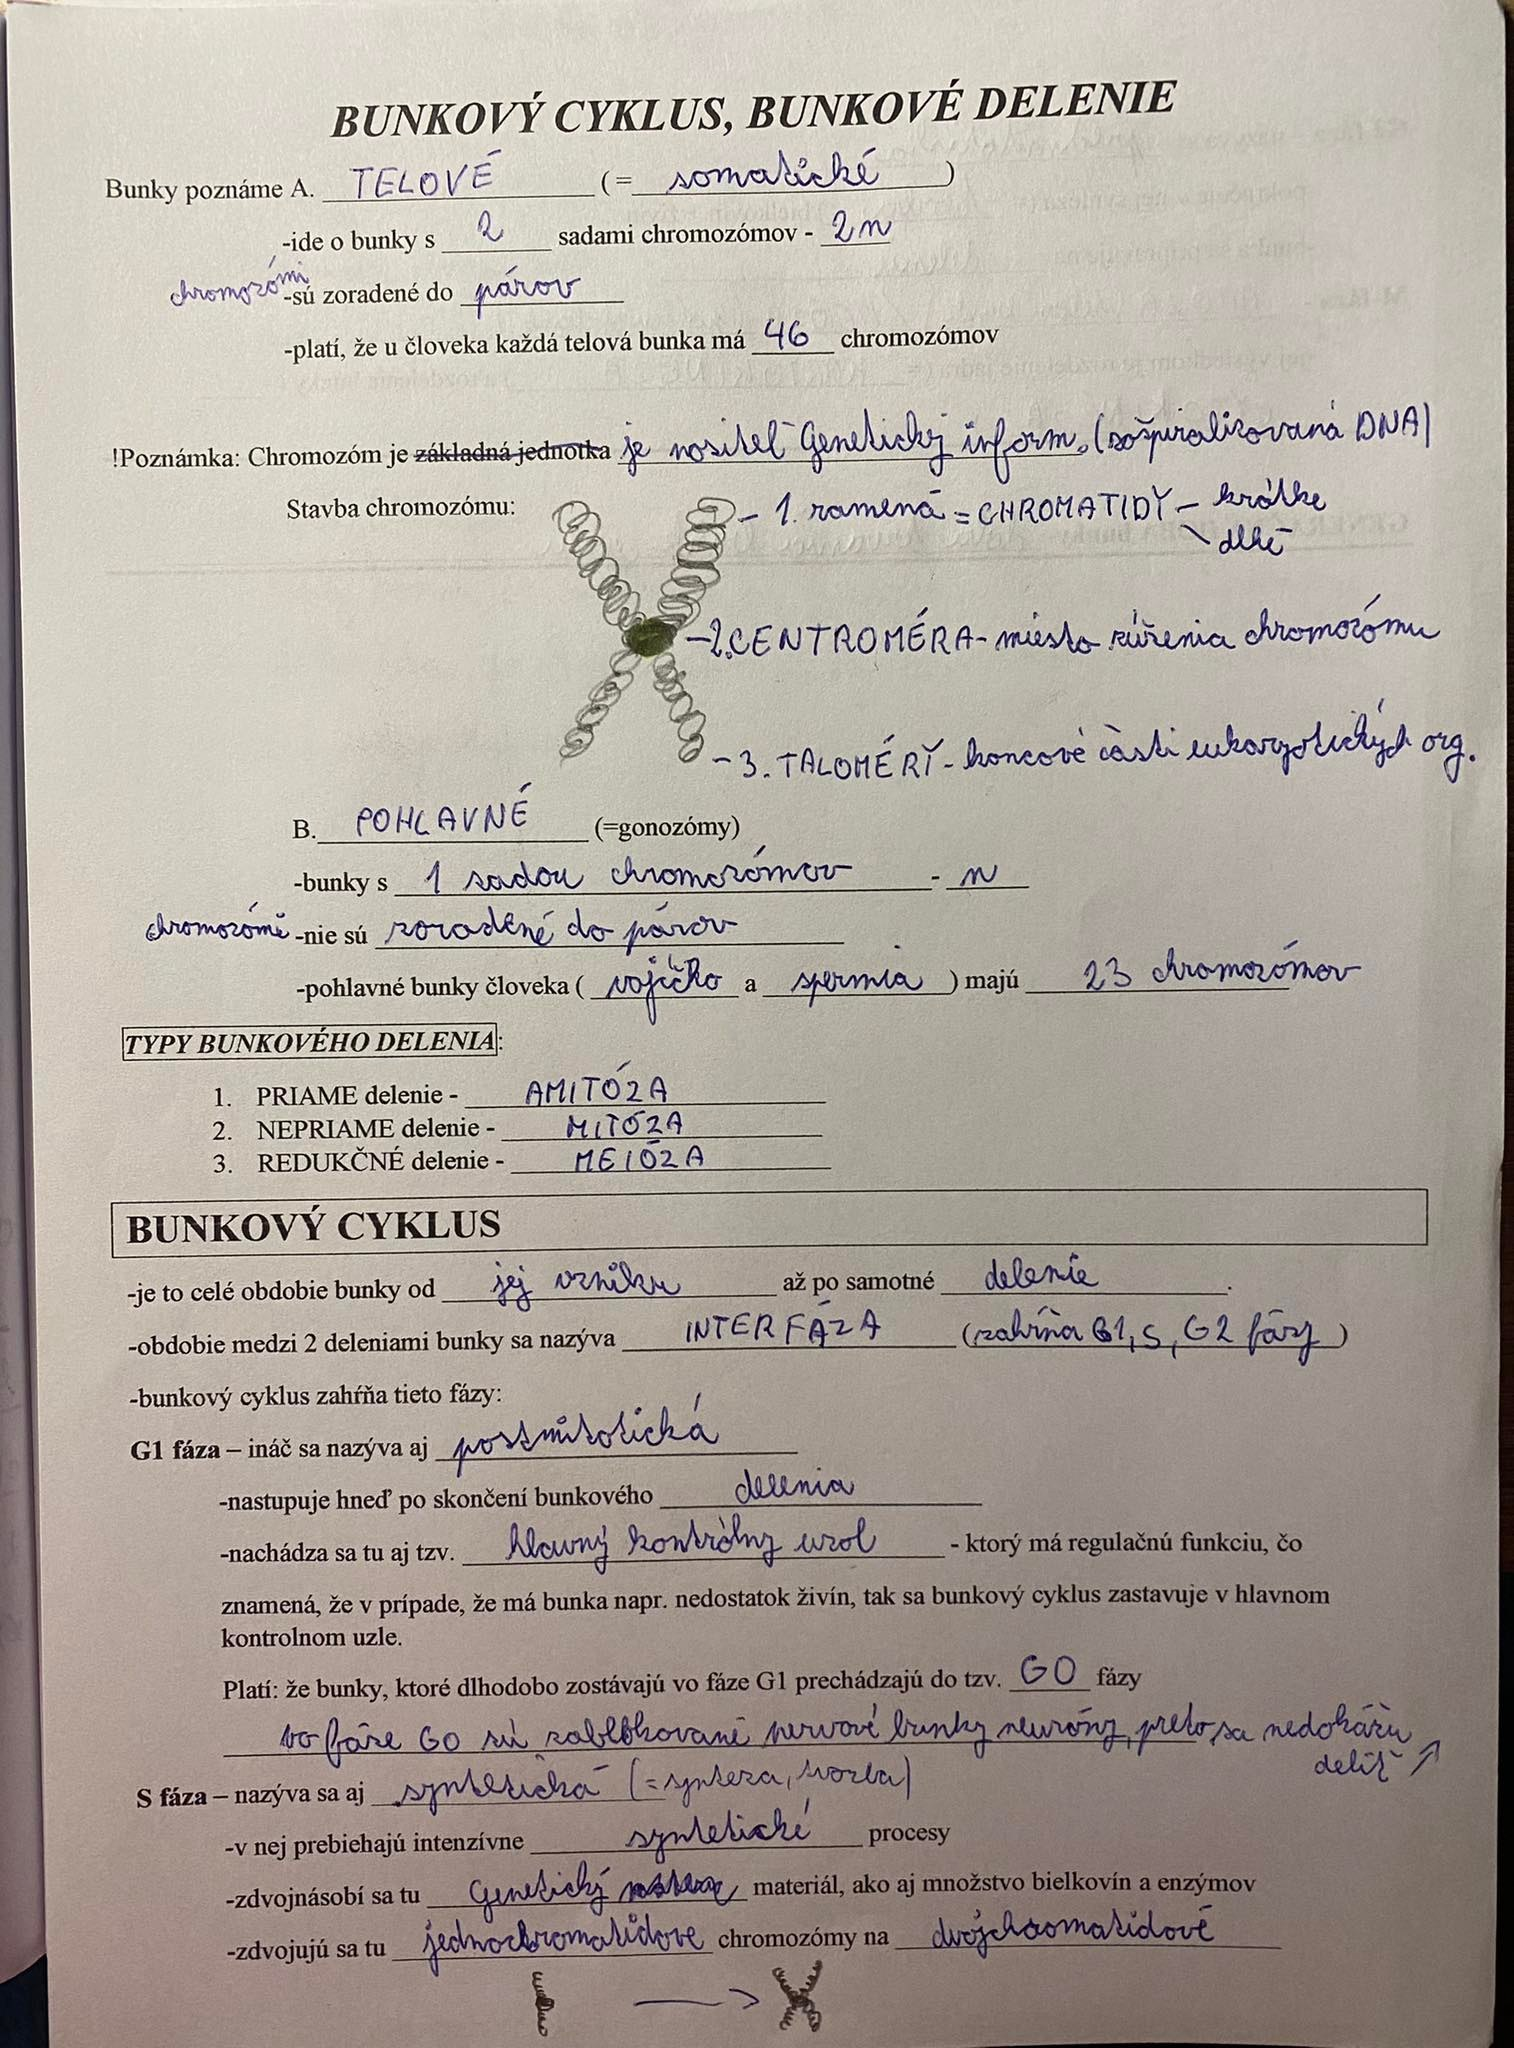 BUNKOVÝ CYKLUS, BUNKOVÉ DELENIE
Bunky poznáme A. TELOVÉ (= somatické )
-ide o bunky s 2 sadami chromozómov - 2n
chromozómi -sú zoradené do párov
-platí, že u človeka každá telová bunka má 46 chromozómov
!Poznámka: Chromozóm je základná jednotka je nositeľ Genetickej inform. (zošpiralizovaná DNA)
Stavba chromozómu:
- 1. ramená = CHROMATIDY - krátke
dlhé
-2. CENTROMÉRA - miesto zúženia chromozómu
- 3. TALOMÉRY - koncové časti eukaryotických org.
B. POHLAVNÉ (=gonozómy)
-bunky s 1 sadou chromozómov - n
chromozómy -nie sú zoradené do párov
-pohlavné bunky človeka ( vajíčko a spermia ) majú 23 chromozómov
TYPY BUNKOVÉHO DELENIA:
1. PRIAME delenie - AMITÓZA
2. NEPRIAME delenie - MITÓZA
3. REDUKČNÉ delenie - MEIÓZA
BUNKOVÝ CYKLUS
-je to celé obdobie bunky od jej vzniku až po samotné delenie .
-obdobie medzi 2 deleniami bunky sa nazýva INTERFÁZA (zahŕňa G1, S, G2 fázy )
-bunkový cyklus zahŕňa tieto fázy:
G1 fáza – ináč sa nazýva aj postmitotická
-nastupuje hneď po skončení bunkového delenia
-nachádza sa tu aj tzv. hlavný kontrólny uzol - ktorý má regulačnú funkciu, čo
znamená, že v prípade, že má bunka napr. nedostatok živín, tak sa bunkový cyklus zastavuje v hlavnom
kontrolnom uzle.
Platí: že bunky, ktoré dlhodobo zostávajú vo fáze G1 prechádzajú do tzv. GO fázy
vo fáze GO sú zablokované nervové bunky neuróny, preto sa nedokážu
deliť
S fáza – nazýva sa aj syntetická (= synteza, tvorba)
-v nej prebiehajú intenzívne syntetické procesy
-zdvojnásobí sa tu Genetický materiál, ako aj množstvo bielkovín a enzýmov
-zdvojujú sa tu jednochromatidove chromozómy na dvojchromatidové